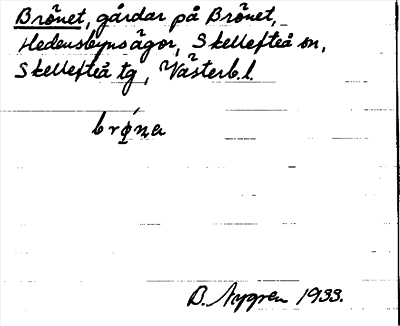 Brönet, gårdar på Brönet,
Hedensbyns ägor, Skellefteå sn,
Skellefteå tg, Västerb. l.
brǿṇa
B. Nygren 1933.